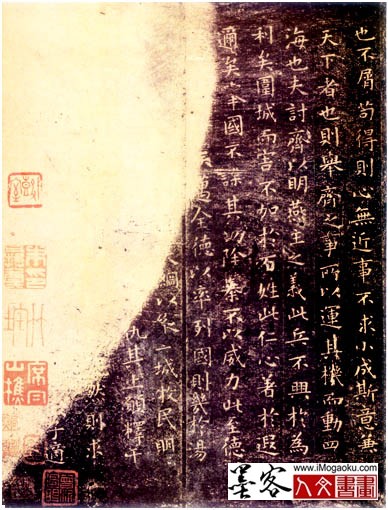 也不屑苟得則心無近事不求小成斯意兼
天下者也則舉齊之事所以運其機而動四
海也夫討齊以明燕主之義此兵不興於為
利矣圍城而害不加於百姓此仁心著於遐
邇矣舉國不謀其功除暴不以威力此至德
矣邁全德以率列國則幾於湯
大綱以縱二城牧民明
仇其上願釋干
然則求
于適
墨客
www.iMogaoku.com
人文書畫